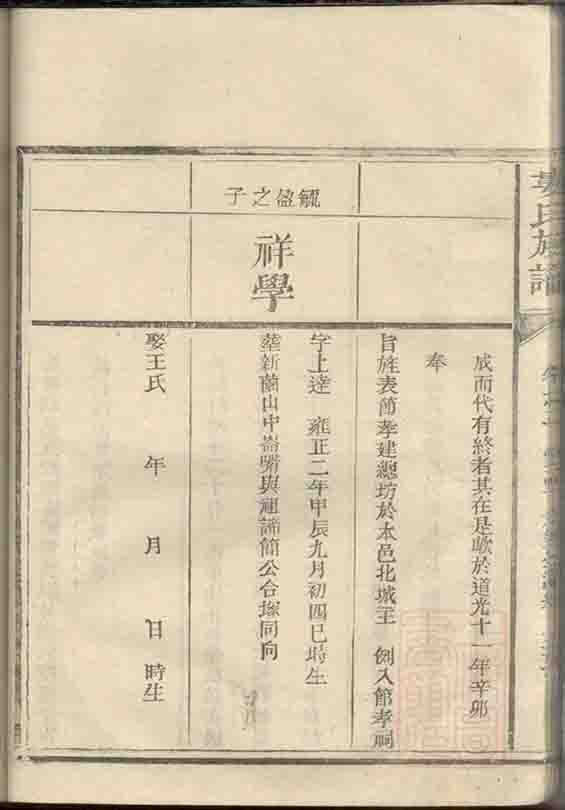 氏族譜
成而代有終者其在是歟於道光十一年辛卯
奉
旨旌表節孝建總坊於本邑北城王 側入節孝祠
毓盈之子
祥學
字上達 雍正二年甲辰九月初四巳時生
葬新蘭山中嵛嘴與祖諦簡公合塚同向
娶王氏 年 月 日時生